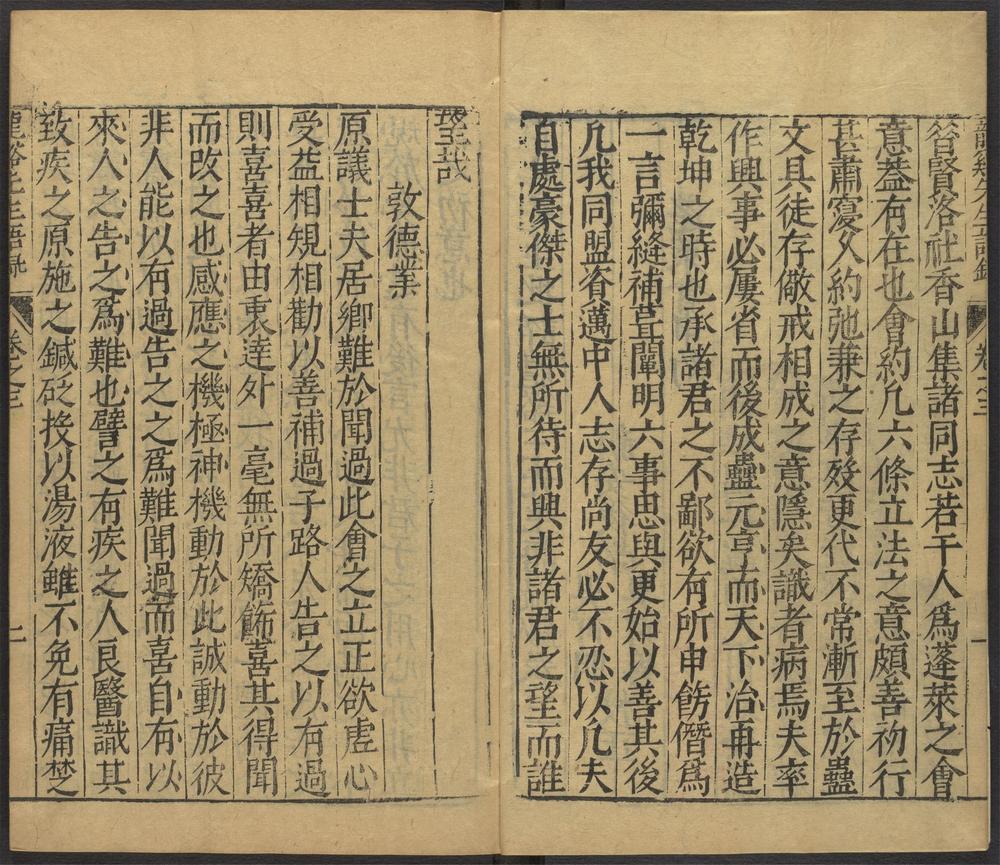 龍谿先生語錄 卷之三 一
答賢洛社香山集諸同志若干人爲蓬萊之會
意葢有在也會約凡六條立法之意頗善初行
甚肅寖久約弛兼之存歿更代不常漸至於蠱
文具徒存儆戒相成之意隱矣識者病焉夫率
作興事必屢省而後成蠱元亨而天下治再造
乾坤之時也承諸君之不鄙欲有所申飭僭爲
一言彌縫補葺闡明六事思與更始以善其後
凡我同盟資邁中人志存尚友必不忍以凡夫
自處豪傑之士無所待而興非諸君之望而誰
望哉
敦德業
原議士夫居鄉難於聞過此會之立正欲虛心
受益相規相勸以善補過子路人告之以有過
則喜喜者由衷達外一毫無所矯飾喜其得聞
而改之也感應之機極神機動於此誠動於彼
非人能以有過告之之爲難聞過而喜自有以
來人之告之爲難也譬之有疾之人良醫識其
致疾之原施之鍼砭投以湯液雖不免有痛楚
龍谿先生語錄 卷之三 二